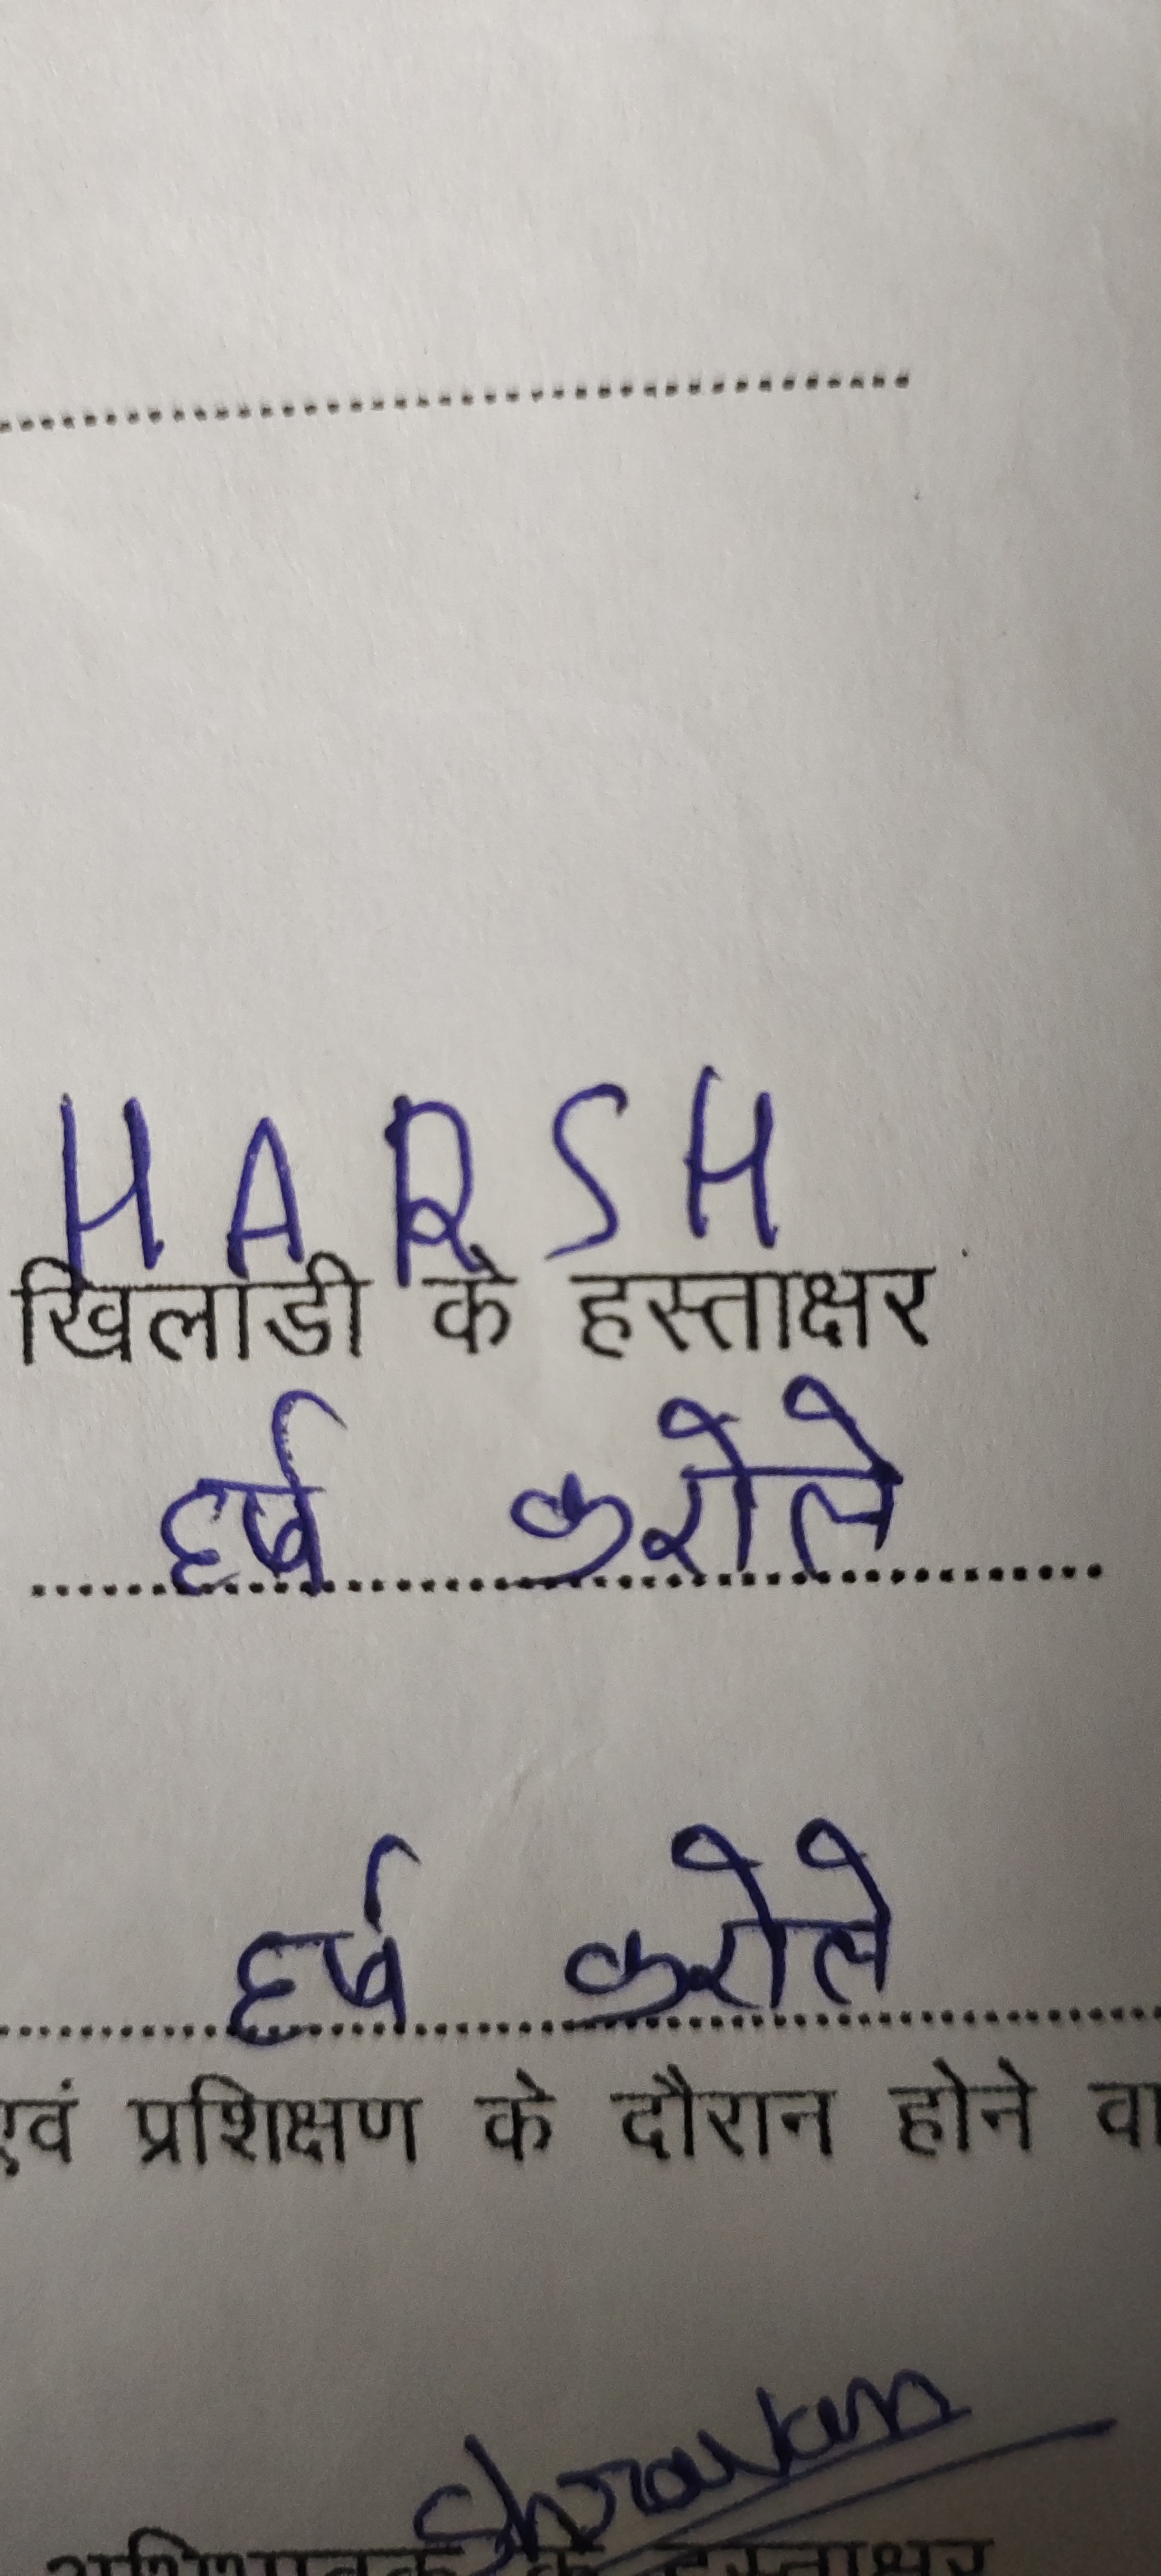 HARSH
खिलाडी के हस्ताक्षर
हर्ष करोले
हर्ष करोले
एवं प्रशिक्षण के दौरान होने वा
Shravan
अभिभावक के हस्ताक्षर